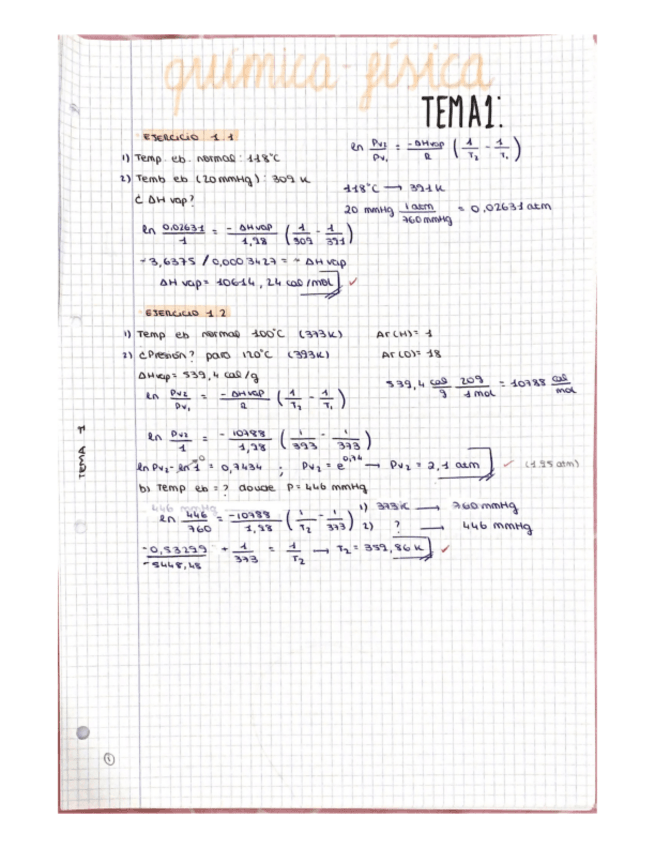 química-física
TEMA 1:
EJERCICIO 1.1
1) Temp. eb. normal: 118°C
2) Temb eb (20 mmHg): 309 K
¿ ΔH vap?
ln Pv2/Pv1 = -ΔHvap/R (1/T2 - 1/T1)
118°C → 391K
20 mmHg 1 atm/760 mmHg = 0,02631 atm
ln 0,02631/1 = - ΔHvap/1,98 (1/309 - 1/391)
-3,6375 / 0,0003427 = - ΔH vap
ΔH vap = 10614,24 cal/mol ✓
EJERCICIO 1.2
1) Temp eb normal 100°C (373K)
Ar(H) = 1
2) ¿Presión? para 120°C (393K)
Ar(O) = 18
ΔHvap = 539,4 cal/g
539,4 cal/g 20g/1mol = 10788 cal/mol
ln Pv2/Pv1 = - ΔHvap/R (1/T2 - 1/T1)
ln Pv2/1 = -10788/1,98 (1/393 - 1/373)
ln Pv2 - ln 1 = 0,7434 ; Pv2 = e^0,74 → Pv2 = 2,1 atm ✓ (1.95 atm)
b) Temp eb = ? donde P = 446 mmHg
446 mmHg
1) 373K → 760 mmHg
ln 446/760 = -10788/1,98 (1/T2 - 1/373)
2) ? → 446 mmHg
-0,53299/-5448,48 + 1/373 = 1/T2 → T2 = 359,86 K ✓
TEMA 1
1